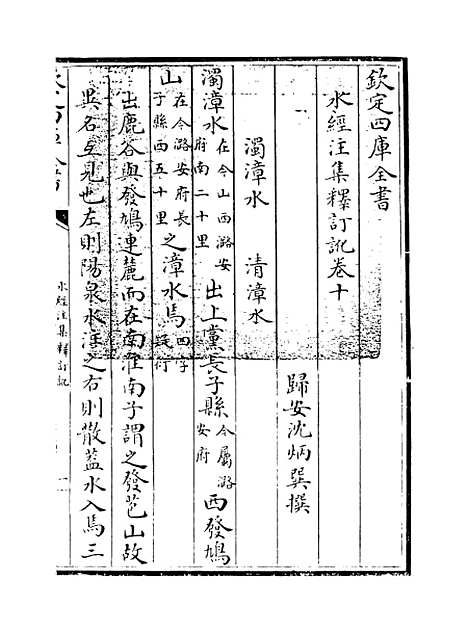 欽定四庫全書
水經注集釋訂訛卷十
歸安沈炳巽撰
濁漳水 清漳水
濁漳水在今山西潞安府南二十里出上黨長子縣今屬潞安府西發鳩
山在今潞安府長子縣西五十里之漳水焉四字疑衍
出鹿谷與發鳩連麓而在南淮南子謂之發苞山故
異名互見也左則陽泉水注之右則散葢水入焉三
水經注集釋訂訛